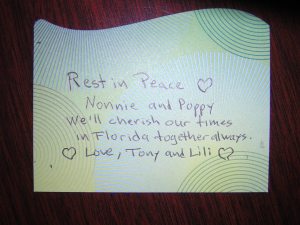 Rest in Peace ♡
Nonnie and Poppy
We'll cherish our times
in Florida together always.
♡ Love, Tony and Lili ♡